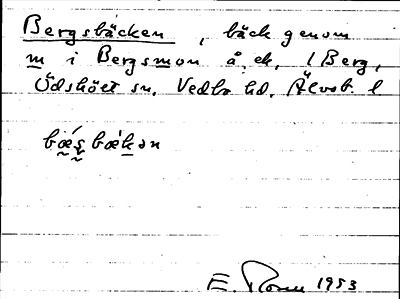 Bergsbäcken, bäck genom
m i Bergsmon å. ek. 1 Berg,
Ödsköлt sn. Vedbo hd. Älvsb. l
bǽʂbækən
E. 1953